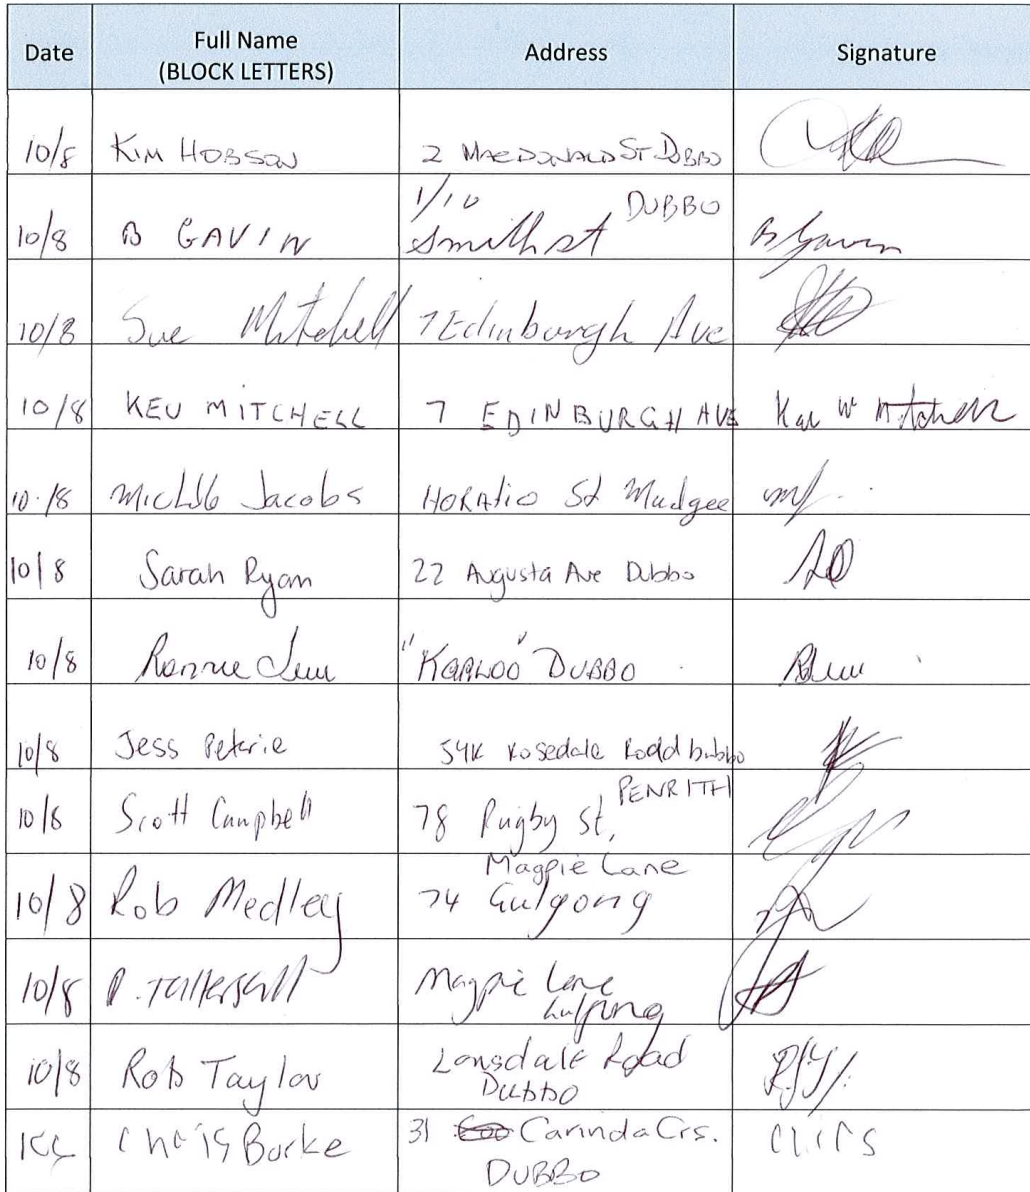 Date Full Name (BLOCK LETTERS) Address Signature
10/8 KIM HOBSON 2 MACDONALD ST DUBBO
10/8 B GAVIN 1/10 Smith st DUBBO B Gavin
10/8 Sue Mitchell 7 Edinburgh Ave
10/8 KEV MITCHELL 7 EDINBURGH AVE Kev W Mitchell
10/8 Jacobs HORATIO St Mudgee
10/8 Sarah Ryan 22 Augusta Ave Dubbo
10/8 "KARLOO" DUBBO
10/8 Jess Petrie 54K Rosedale Road Dubbo
10/8 Scott Campbell 78 Rugby St, PENRITH
10/8 Rob Medley 74 Magpie Lane Gulgong
10/8 P. Tattersall Magpie Lane Gulgong
10/8 Rob Taylor Lansdale Road DUBBO
Chris Burke 31 Carinda Crs. DUBBO Chris